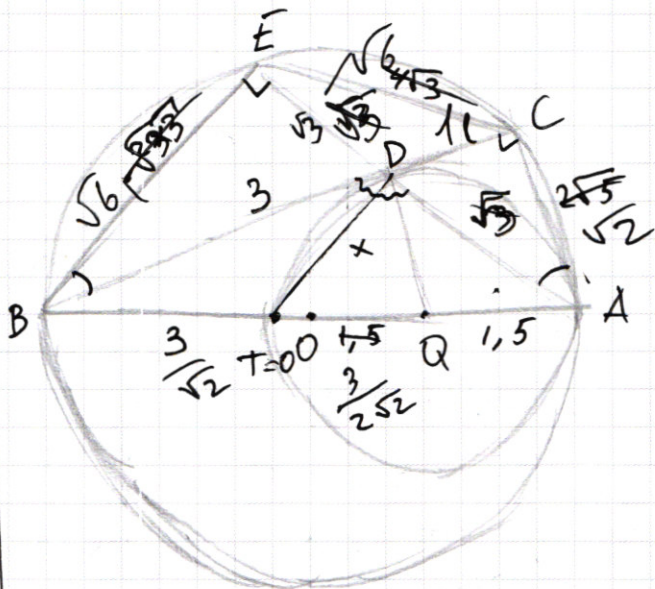 E
√6
√3
1
C
D
√6
3
√3
2√5
√2
x
B
A
3/√2
T=OO
1,5
Q
1,5
3/2 √2